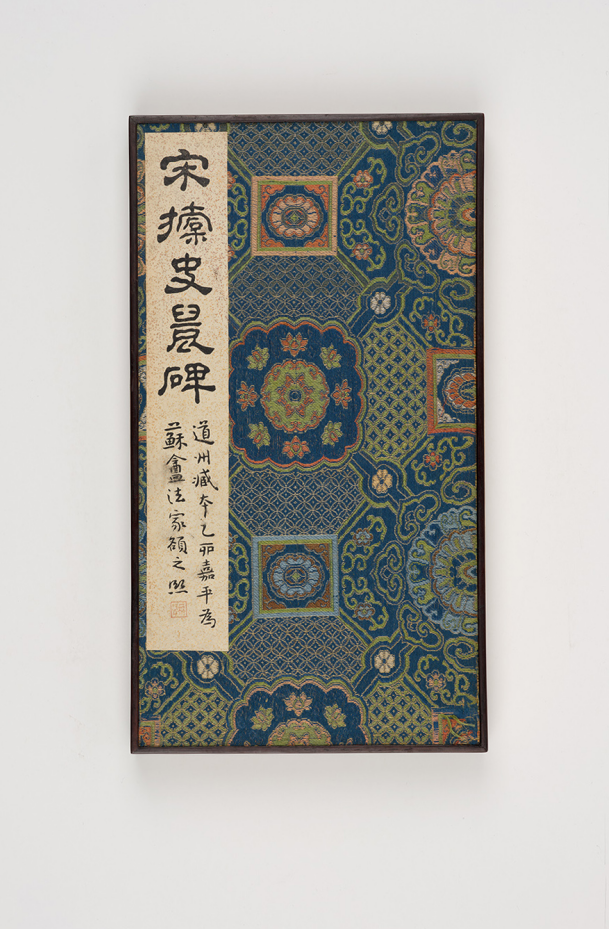 宋史晨碑
道州藏本乙卯嘉平為
蘇盦法家額之熙